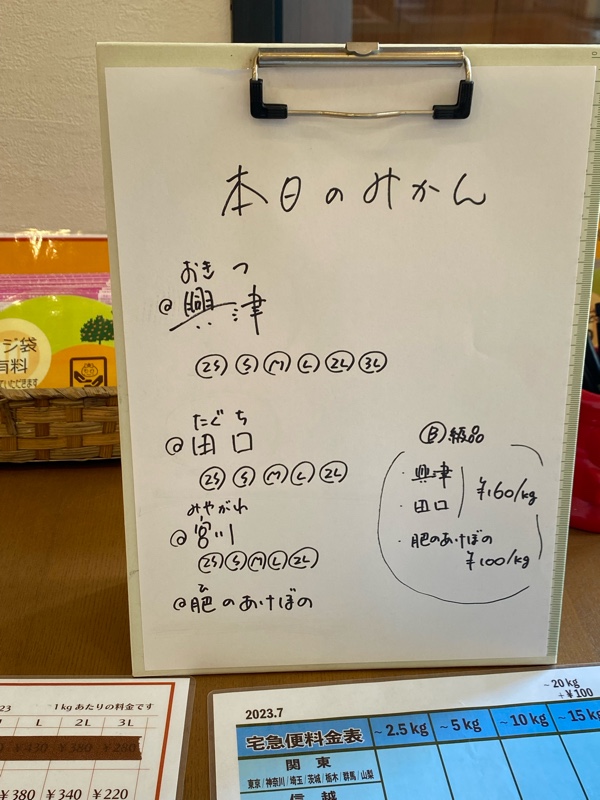 本日のみかん
おきつ
@興津
2S S M L 2L 3L
たぐち
@田口
2S S M L 2L
みやがわ
@宮川
2S S M L 2L
ひ
@肥のあけぼの
B級品
・興津
・田口
¥160/kg
・肥のあけぼの
¥100/kg
ジ袋
有料
いただきます
23 1kgあたりの料金です
L 2L 3L
¥430 ¥380 ¥280
¥380 ¥340 ¥220
2023.7
~20kg
+¥100
宅急便料金表 ~2.5kg ~5kg ~10kg ~15k
関東
東京/神奈川/埼玉/茨城/栃木/群馬/山梨
信越